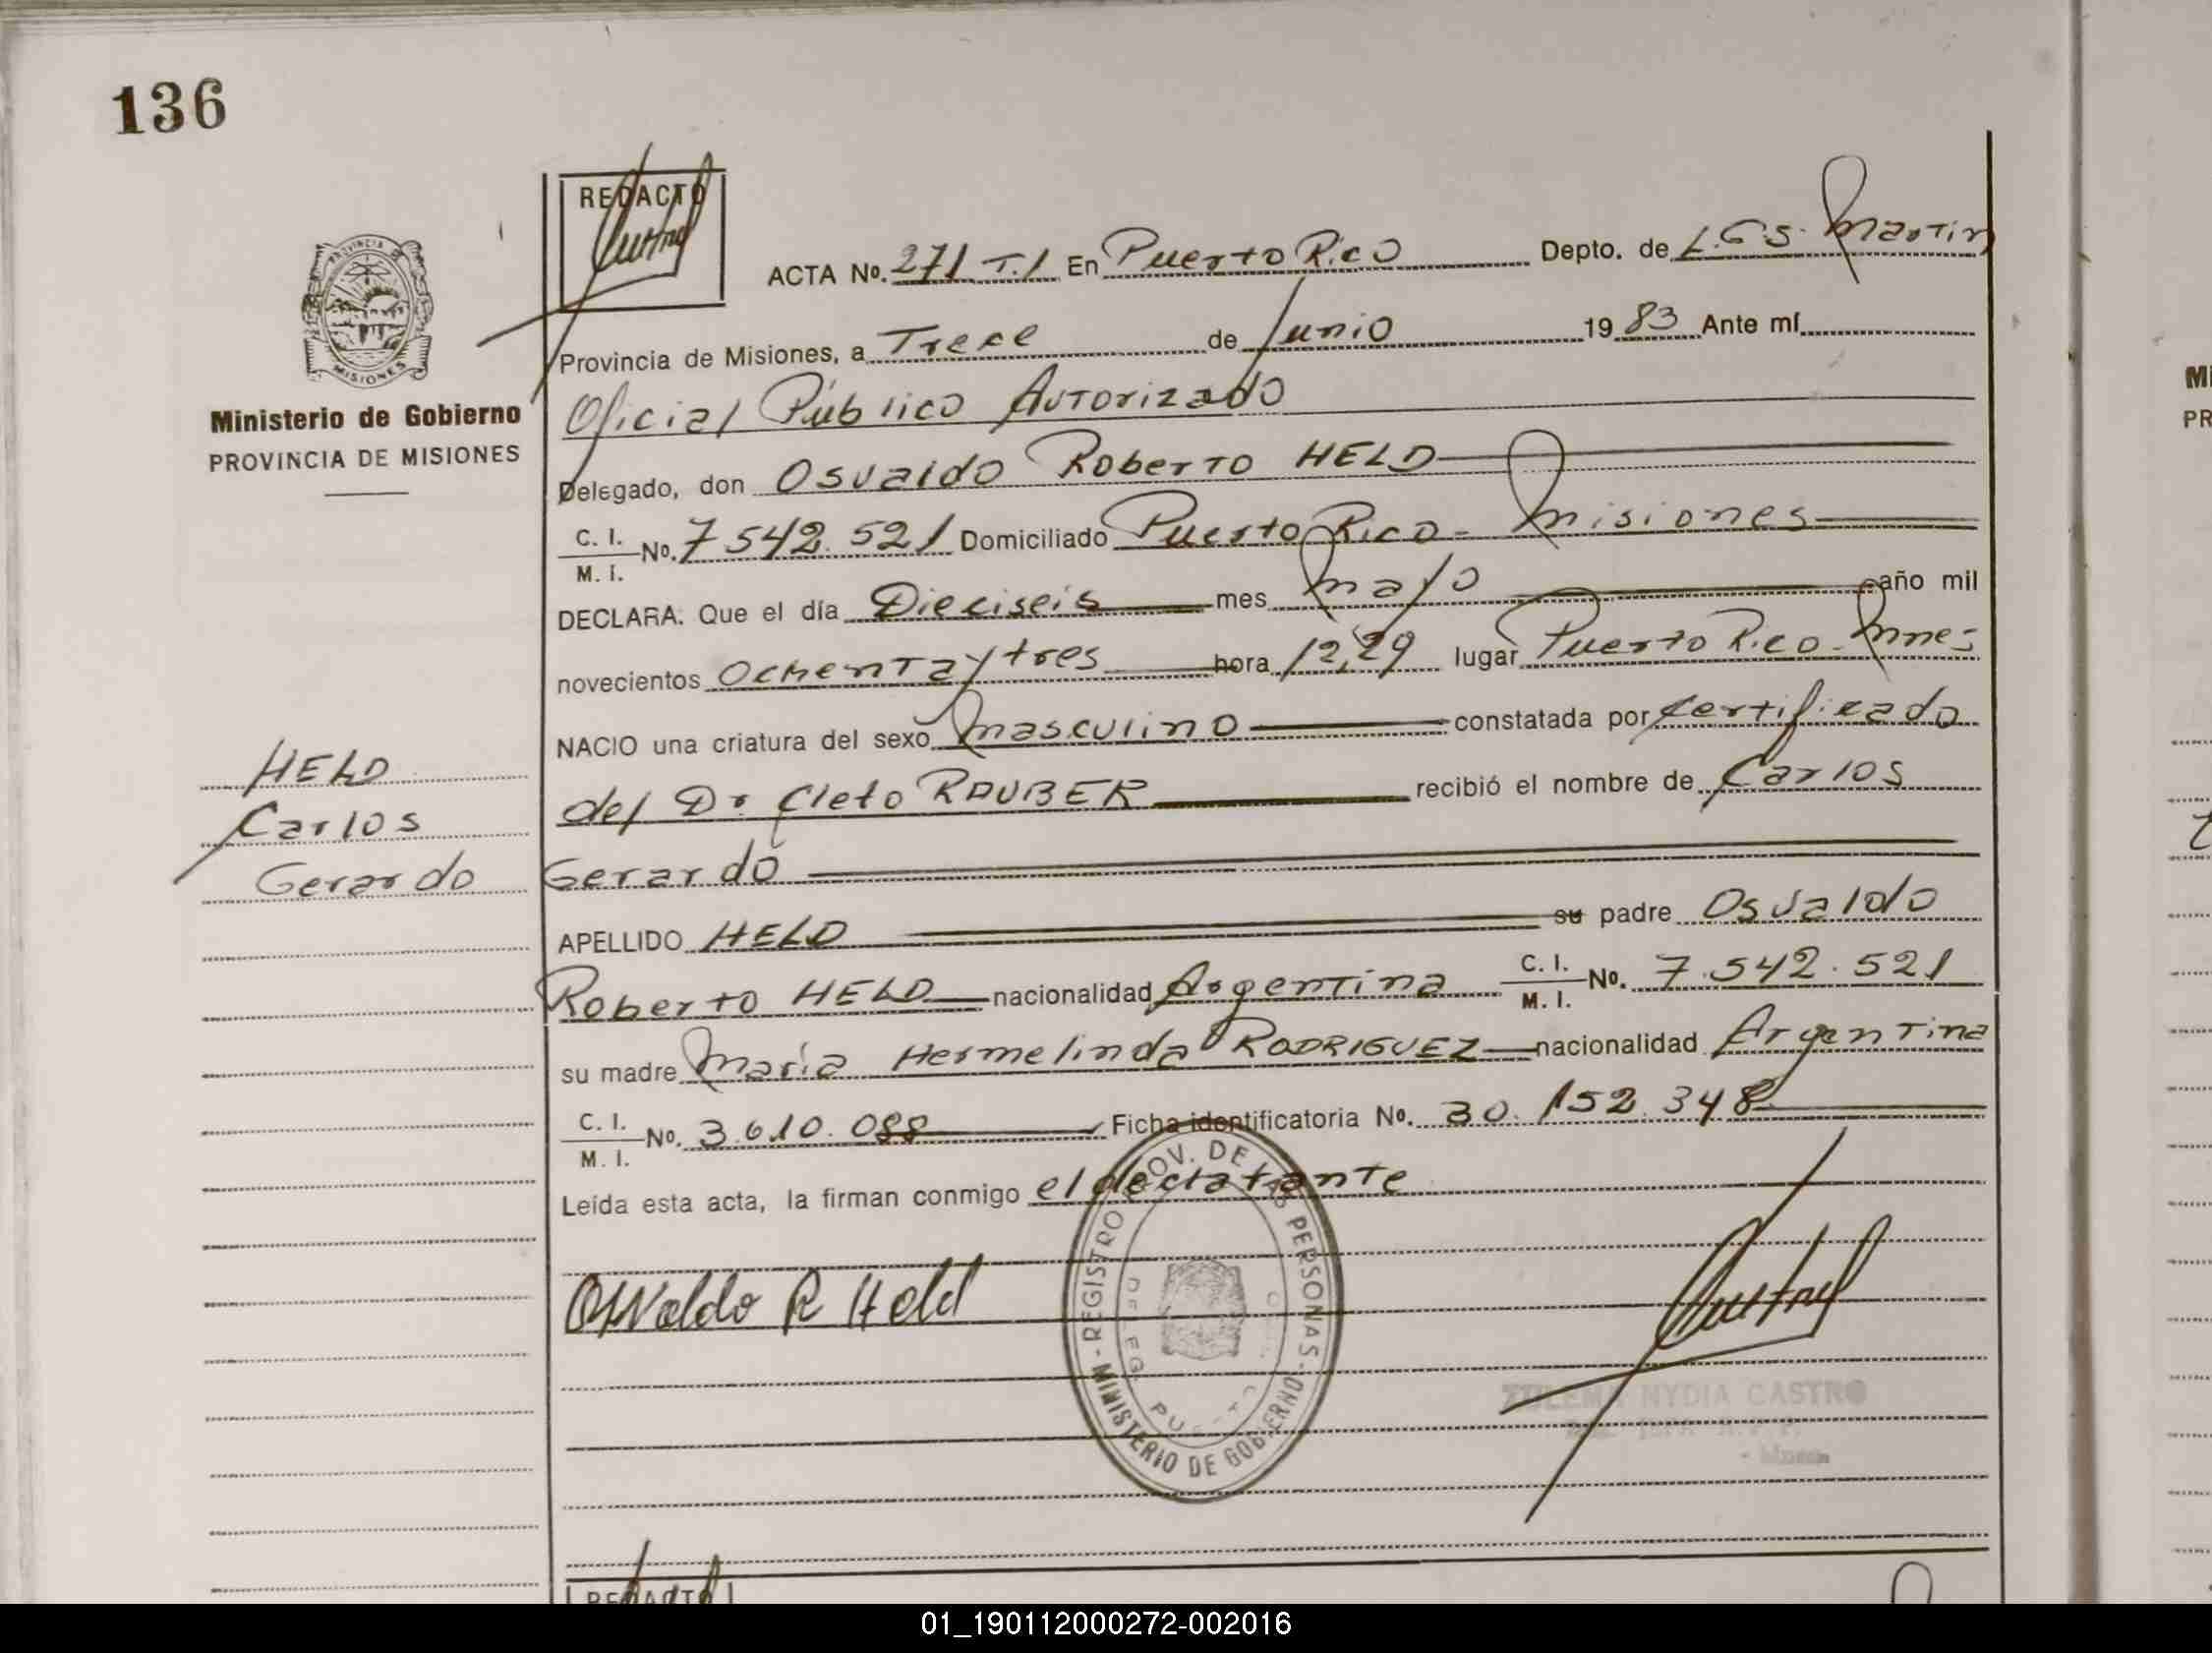 136
REDACTO
ACTA No. 271 T.1 En Puerto Rico Depto. de L.G.S. Martin
Provincia de Misiones, a Trece de Junio 1983 Ante mí
Oficial Público Autorizado
Delegado, don Osvaldo Roberto HELD
C. I. M. I. No. 7542.521 Domiciliado Puerto Rico - Misiones
DECLARA: Que el día Dieciseis mes mayo año mil
novecientos Ochenta y tres hora 12,29 lugar Puerto Rico - Mnes
NACIO una criatura del sexo masculino constatada por Certificado
del Dr Cleto RAUBER recibió el nombre de Carlos
Gerardo
APELLIDO HELD su padre Osvaldo
Roberto HELD nacionalidad Argentina C. I. M. I. No. 7.542.521
su madre María Hermelinda RODRIGUEZ nacionalidad Argentina
C. I. M. I. No. 3.610.088 Ficha identificatoria No. 30.152.348
Leída esta acta, la firman conmigo el
Osvaldo R Held
PROVINCIA DE
MISIONES
Ministerio de Gobierno
PROVINCIA DE MISIONES
HELD
Carlos
Gerardo
REGISTRO PROV. DE LAS PERSONAS - MINISTERIO DE GOBIERNO -
DELEG. PUERTO
ZULEMA NYDIA CASTRO
REDACTO
Mi
PR
01_190112000272-002016